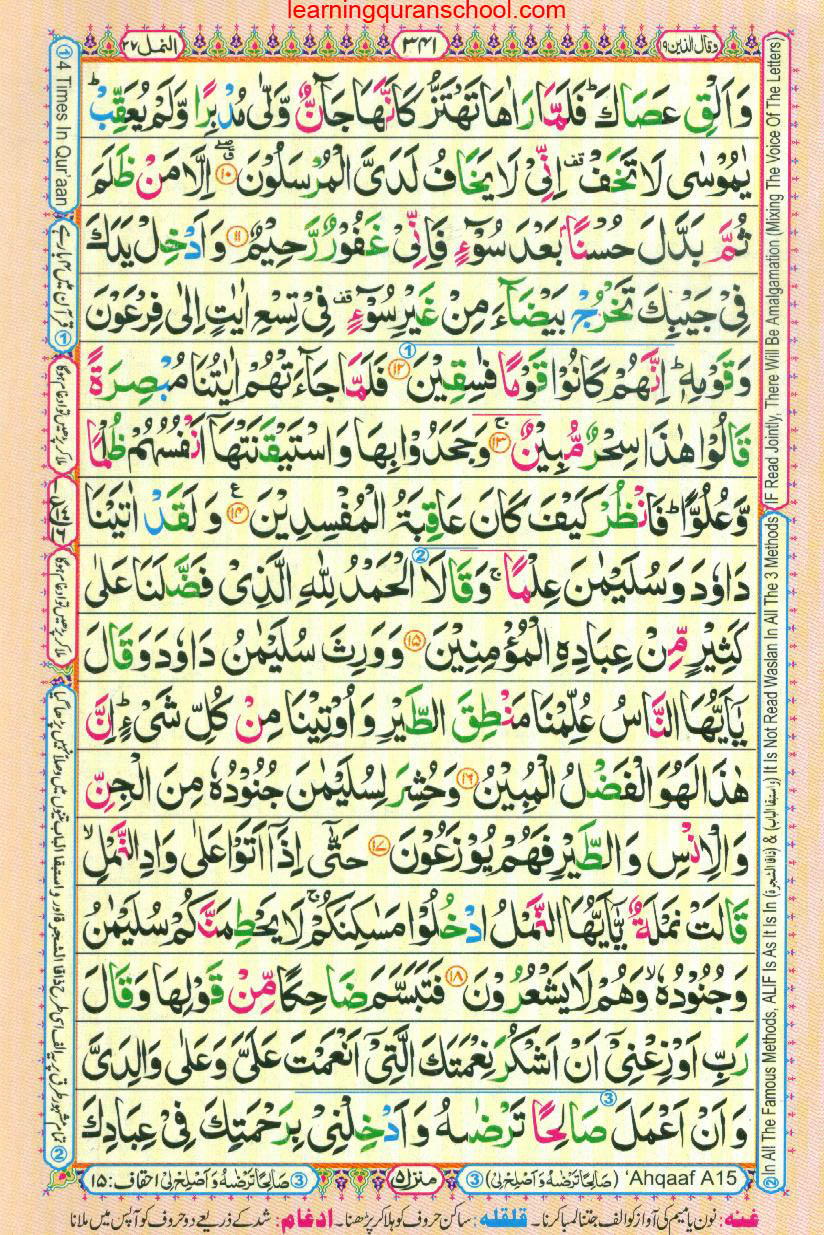 learningquranschool.com
وقال الذین ۱۹
۳۴۱
النمل ۲۷
وَاَلْقِ عَصَاكَ ؕ فَلَمَّا رَاٰهَا تَهْتَزُّ كَاَنَّهَا جَآنٌّ وَّلّٰى مُدْبِرًا وَّلَمْ يُعَقِّبْ ؕ
يٰمُوْسٰى لَا تَخَفْ قف اِنِّىْ لَا يَخَافُ لَدَىَّ الْمُرْسَلُوْنَ ۱۰ اِلَّا مَنْ ظَلَمَ
ثُمَّ بَدَّلَ حُسْنًاۢ بَعْدَ سُوْٓءٍ فَاِنِّىْ غَفُوْرٌ رَّحِيْمٌ ۱۱ وَاَدْخِلْ يَدَكَ
فِىْ جَيْبِكَ تَخْرُجْ بَيْضَآءَ مِنْ غَيْرِ سُوْٓءٍ قف فِىْ تِسْعِ اٰيٰتٍ اِلٰى فِرْعَوْنَ
وَقَوْمِهٖ ؕ اِنَّهُمْ كَانُوْا قَوْمًا فٰسِقِيْنَ ۱۲ فَلَمَّا جَآءَتْهُمْ اٰيٰتُنَا مُبْصِرَةً
قَالُوْا هٰذَا سِحْرٌ مُّبِيْنٌ ۱۳ ۚ وَجَحَدُوْا بِهَا وَاسْتَيْقَنَتْهَاۤ اَنْفُسُهُمْ ظُلْمًا
وَّعُلُوًّا ؕ فَانْظُرْ كَيْفَ كَانَ عَاقِبَةُ الْمُفْسِدِيْنَ ۱۴ ع وَلَقَدْ اٰتَيْنَا
دَاوٗدَ وَسُلَيْمٰنَ عِلْمًا ۚ وَقَالَا الْحَمْدُ لِلّٰهِ الَّذِىْ فَضَّلَنَا عَلٰى
كَثِيْرٍ مِّنْ عِبَادِهِ الْمُؤْمِنِيْنَ ۱۵ وَوَرِثَ سُلَيْمٰنُ دَاوٗدَ وَقَالَ
يٰۤاَيُّهَا النَّاسُ عُلِّمْنَا مَنْطِقَ الطَّيْرِ وَاُوْتِيْنَا مِنْ كُلِّ شَىْءٍ ؕ اِنَّ
هٰذَا لَهُوَ الْفَضْلُ الْمُبِيْنُ ۱۶ وَحُشِرَ لِسُلَيْمٰنَ جُنُوْدُهٗ مِنَ الْجِنِّ
وَالْاِنْسِ وَالطَّيْرِ فَهُمْ يُوْزَعُوْنَ ۱۷ حَتّٰۤى اِذَاۤ اَتَوْا عَلٰى وَادِ النَّمْلِ ۙ
قَالَتْ نَمْلَةٌ يّٰۤاَيُّهَا النَّمْلُ ادْخُلُوْا مَسٰكِنَكُمْ ۚ لَا يَحْطِمَنَّكُمْ سُلَيْمٰنُ
وَجُنُوْدُهٗ ۙ وَهُمْ لَا يَشْعُرُوْنَ ۱۸ فَتَبَسَّمَ ضَاحِكًا مِّنْ قَوْلِهَا وَقَالَ
رَبِّ اَوْزِعْنِىْۤ اَنْ اَشْكُرَ نِعْمَتَكَ الَّتِىْۤ اَنْعَمْتَ عَلَىَّ وَعَلٰى وَالِدَىَّ
وَاَنْ اَعْمَلَ صَالِحًا تَرْضٰىهُ وَاَدْخِلْنِىْ بِرَحْمَتِكَ فِىْ عِبَادِكَ
IF Read Jointly, There Will Be Amalgamation (Mixing The Voice Of The Letters)
② In All The Famous Methods, ALIF Is As It Is In (ذاقا الشجرة) & (واستبقا الباب) It Is Not Read Waslan In All The 3 Methods
① 4 Times In Qur'aan
① قرآن میں ۴ بار ہے
ملا کر پڑھیں تو ادغام ہوگا
ملا کر پڑھیں تو ادغام ہوگا
③ (صَالِحًا تَرْضٰىهُ وَاَصْلِحْ لِىْ) 'Ahqaaf A15
منزل ۵
③ صَالِحًا تَرْضٰىهُ وَاَصْلِحْ لِىْ احقاف: ۱۵
غنہ: نون یا میم کی آواز کو الف جتنا لمبا کرنا۔ قلقلہ: ساکن حروف کو ہلا کر پڑھنا۔ ادغام: شد کے ذریعے دو حروف کو آپس میں ملانا